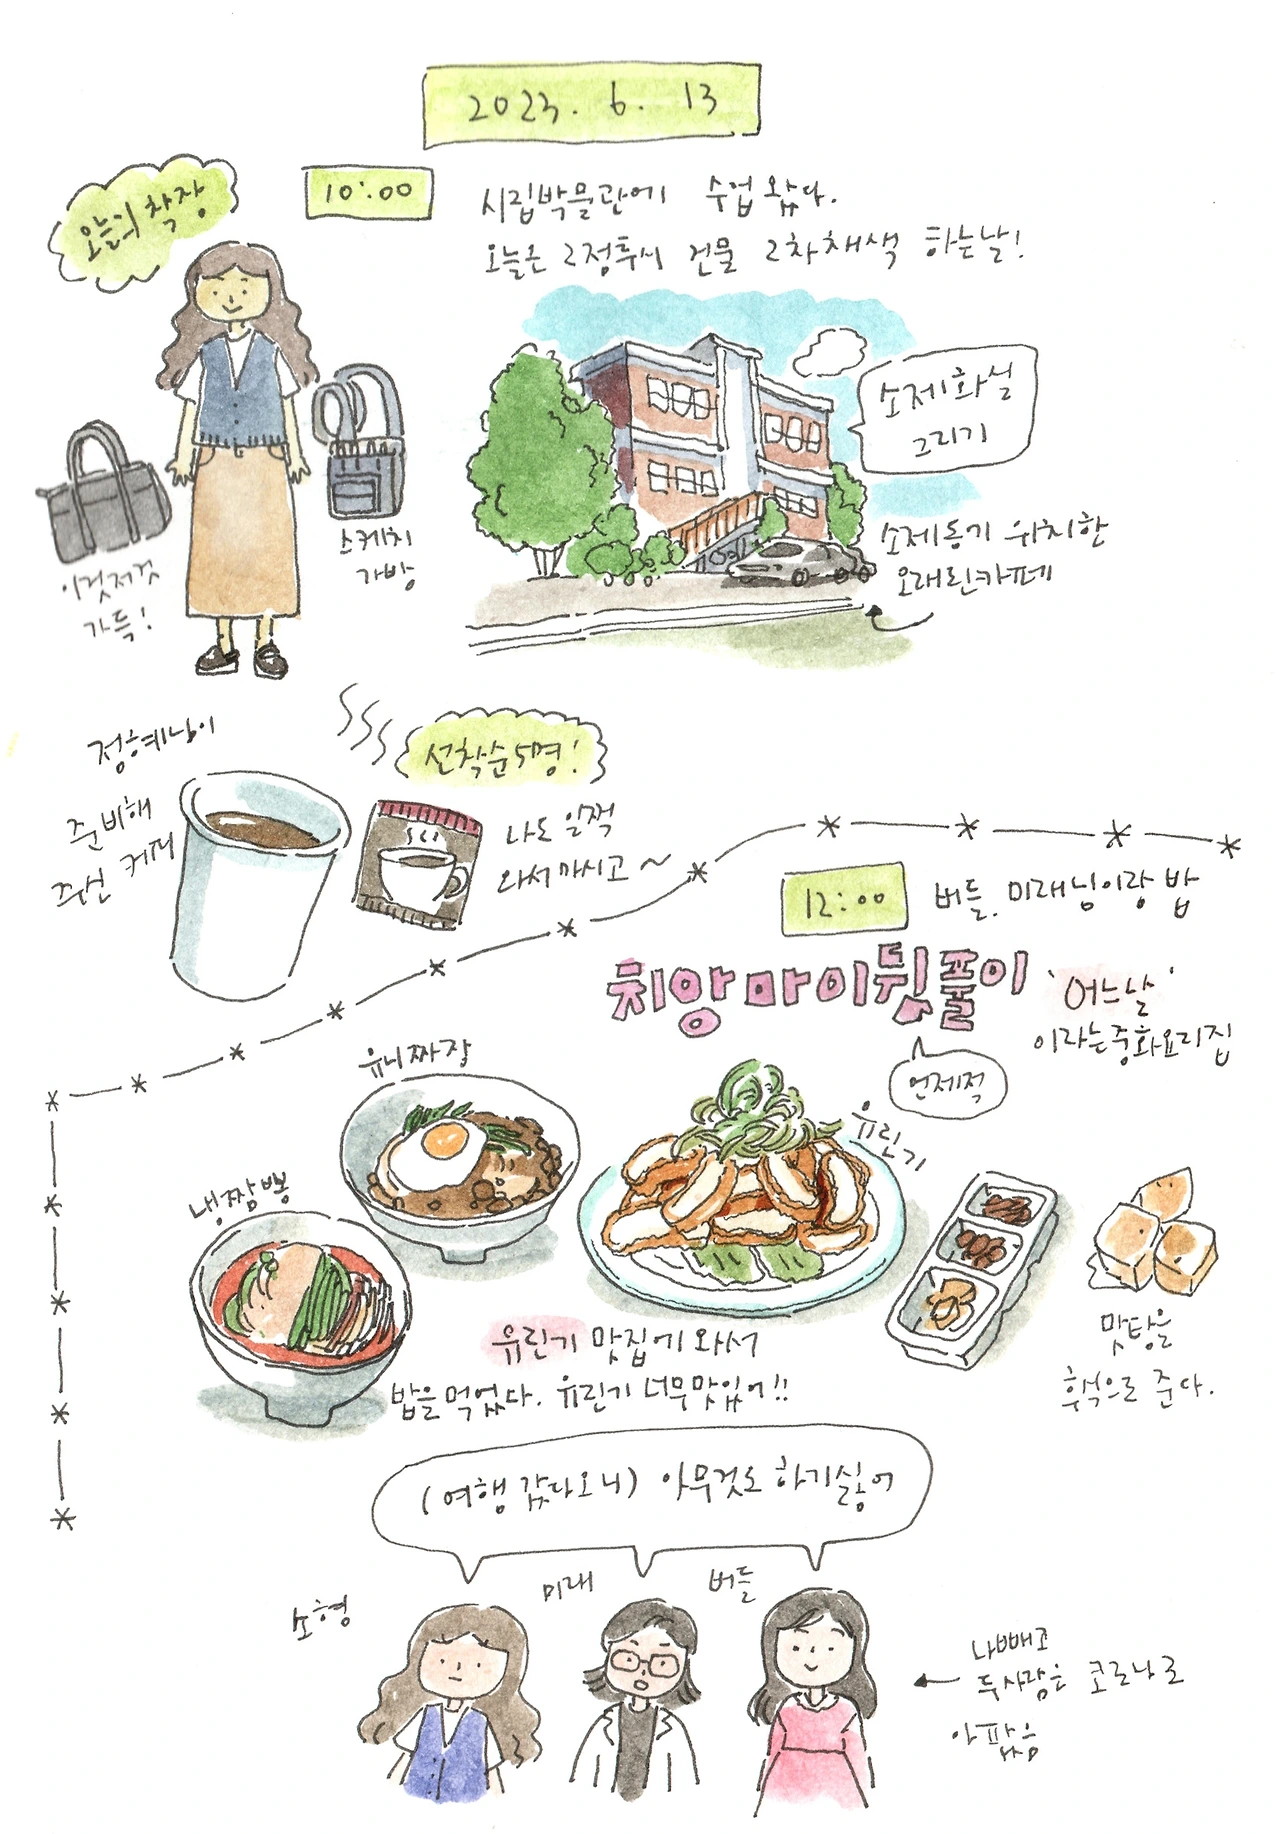 2023. 6. 13
오늘의 착장
10:00
시립박물관에 수업 왔다.
오늘은 2점투시 건물 2차채색 하는날!
이것저것
가득!
스케치
가방
소제화실
그리기
소제동기 위치한
오래된카페
정혜님이
준비해
주신 커피
선착순5명!
나도 일찍
와서마시고~
12:00
버들. 미래님이랑 밥
치앙마이뒷풀이
언제적
'어느날'
이라는중화요리집
유니짜장
냉짬뽕
유린기
유린기 맛집에 와서
밥을먹었다. 유린기 너무맛있어!!
맛탕을
후식으로 준다.
(여행 갔다오니) 아무것도 하기싫어
소형
미래
버들
나빼고
두사람은 코로나로
아팠음